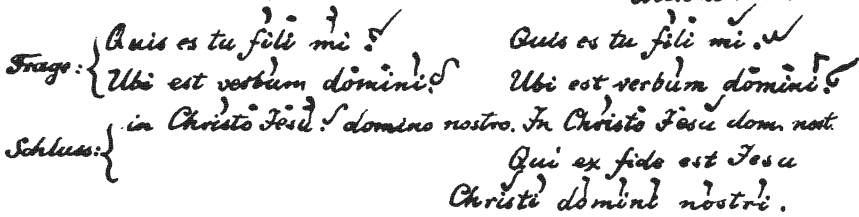 Frage: Quis es tu fili mi? Quis es tu fili mi.
Ubi est verbum domini? Ubi est verbum domini?
Schluss: in Christo Jesu. domino nostro. In Christo Jesu dom. nost.
Qui ex fide est Jesu
Christi domini nostri.